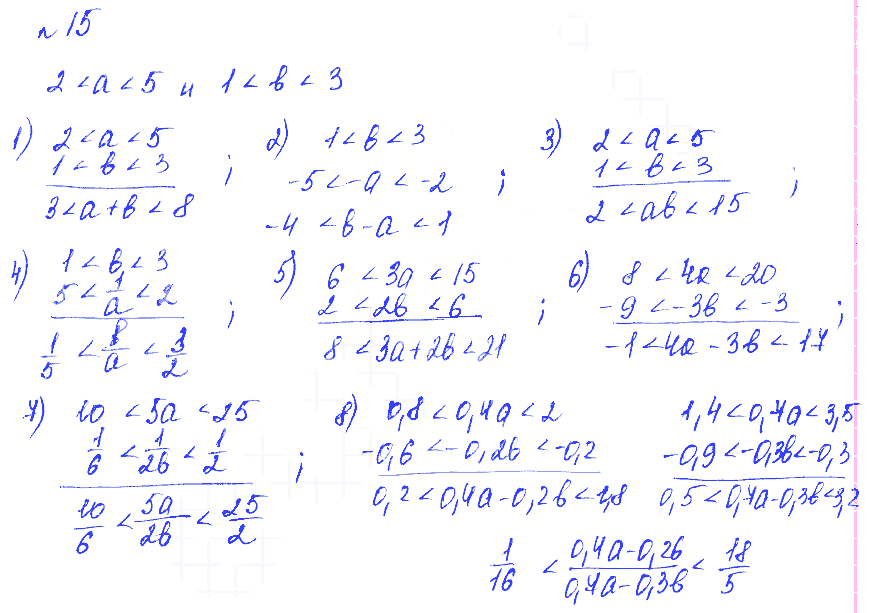 № 15
2 < a < 5 и 1 < в < 3
1) 2 < a < 5
1 < в < 3 ;
3 < a + в < 8
2) 1 < в < 3
-5 < -a < -2 ;
-4 < в - a < 1
3) 2 < a < 5
1 < в < 3 ;
2 < aв < 15
4) 1 < в < 3
5 < 1/a < 2 ;
1/5 < в/a < 3/2
5) 6 < 3a < 15
2 < 2в < 6 ;
8 < 3a + 2в < 21
6) 8 < 4a < 20
-9 < -3в < -3 ;
-1 < 4a - 3в < 17
7) 10 < 5a < 25
1/6 < 1/2в < 1/2 ;
10/6 < 5a/2в < 25/2
8) 0,8 < 0,4a < 2
-0,6 < -0,2в < -0,2
0,2 < 0,4a - 0,2в < 1,8
1,4 < 0,7a < 3,5
-0,9 < -0,3в < -0,3
0,5 < 0,7a - 0,3в < 3,2
1/16 < 0,4a - 0,2в/0,7a - 0,3в < 18/5